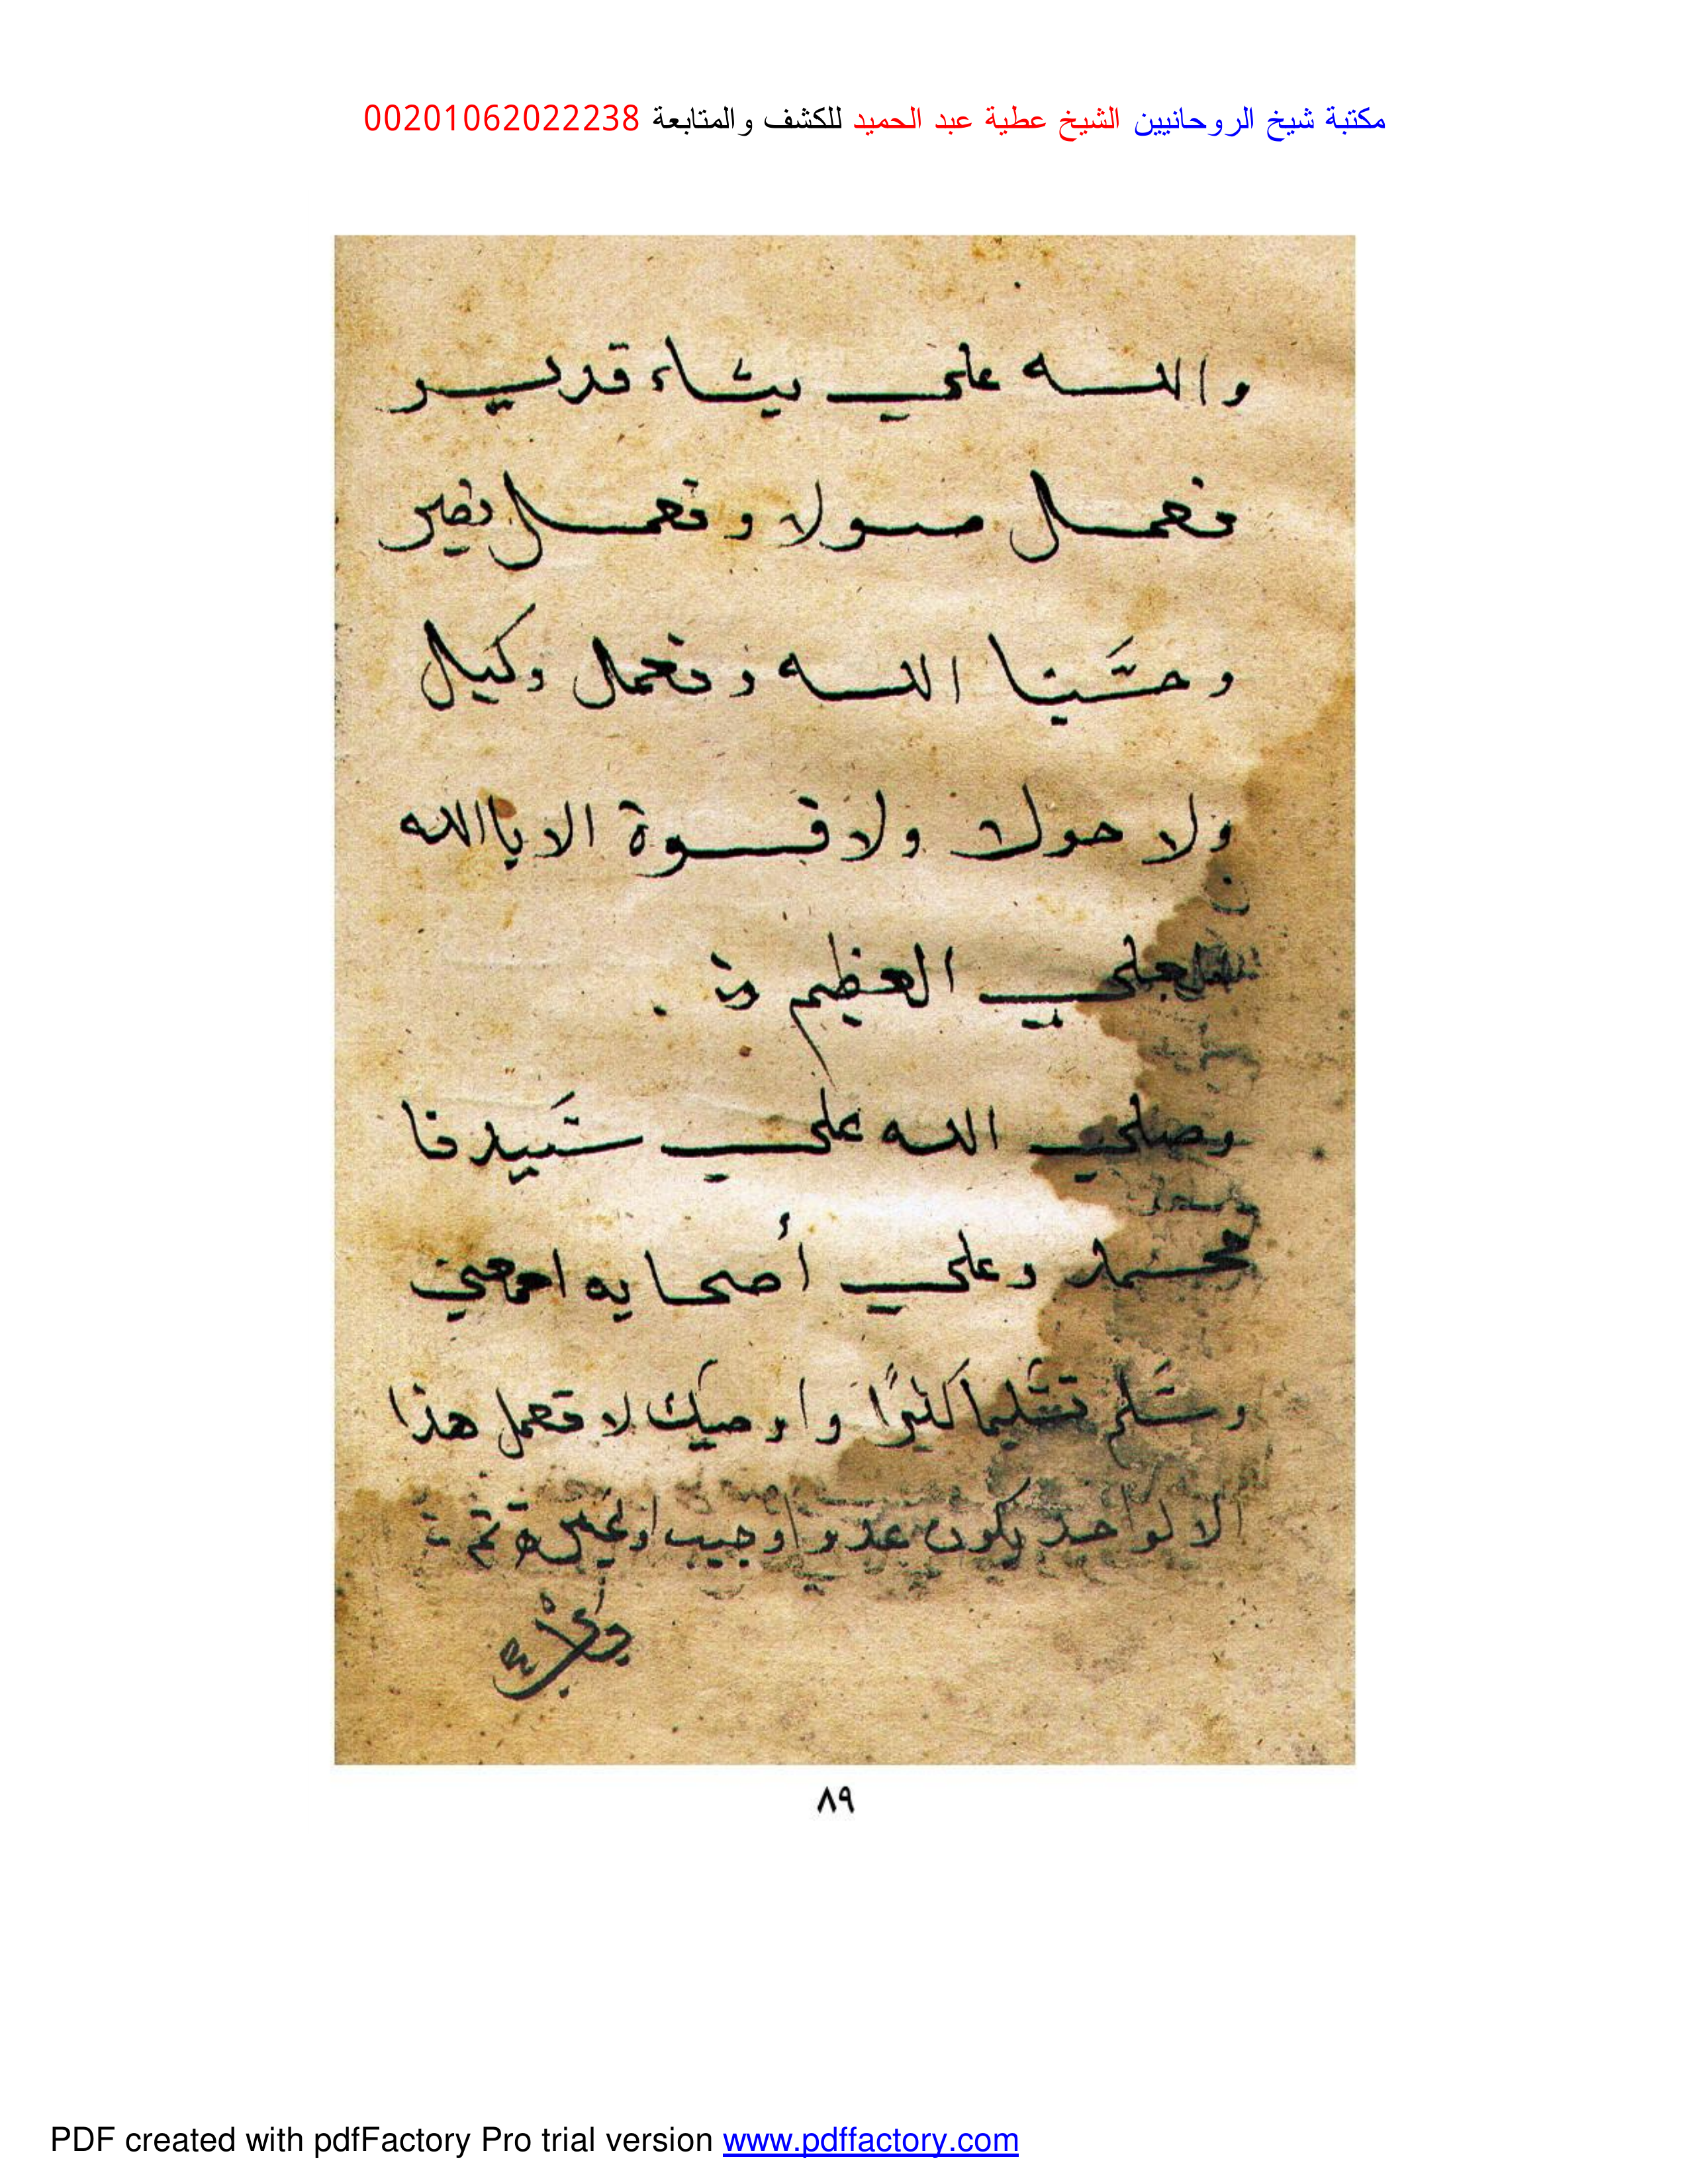 مكتبة شيخ الروحانيين الشيخ عطية عبد الحميد للكشف والمتابعة 00201062022238
والله علي يشاء قدير
نعمل مولا ونعمل نصير
وحسّبنا الله ونعمل وكيل
ولا حول ولا قوة الا ياالله
العلي العظيم
وصلي الله علي سَّيدنا
محمد وعلي أصحابه اجمعين
وسَّلم تسَّليما كثيرًا واوصيك لا تعمل هذا
الا لواحد يكون عدو او حبيب او غيره تم
٨٩
PDF created with pdfFactory Pro trial version www.pdffactory.com